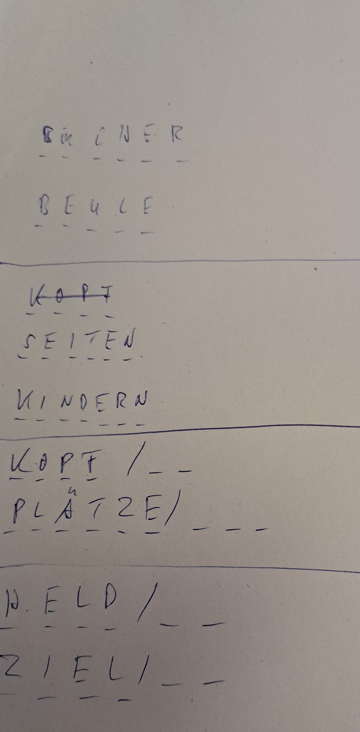 BÜCNER
BEULE
KOPF
SEITEN
KINDERN
KOPF / _ _
PLÄTZE / _ _ _
HELD / _ _
ZIEL / _ _